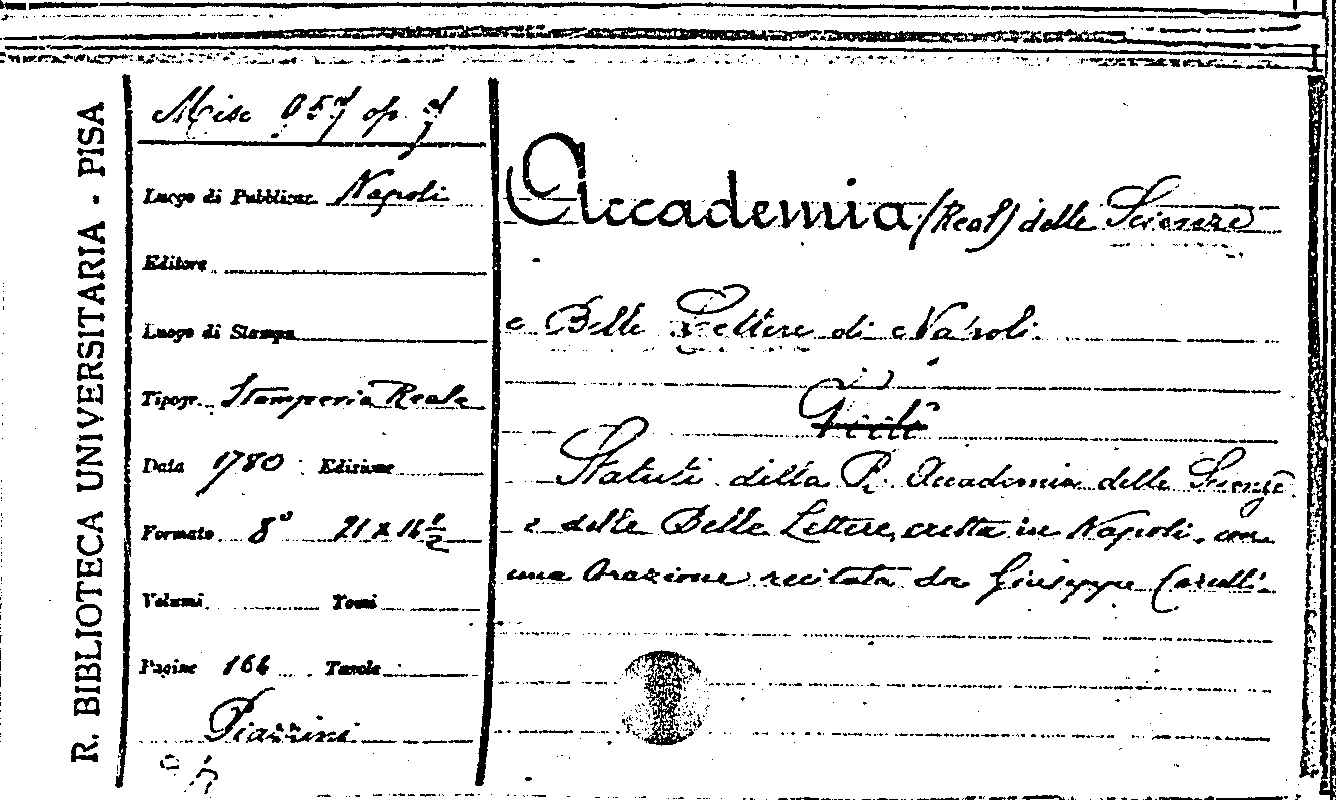 R. BIBLIOTECA UNIVERSITARIA - PISA
Misc 957 op. 7
Luogo di Pubblicaz. Napoli
Editore
Luogo di Stampa
Tipogr. Stamperia Reale
Data 1780 Edizione
Formato 8° 21 x 16 1/2
Volumi Tomi
Pagine 164 Tavole
Piazzini
Accademia (Real) delle Scienze
e Belle Lettere di Napoli.
Statuti della R. Accademia delle Scienze
e delle Belle Lettere, eretta in Napoli, con
una Orazione recitata da Giuseppe Carulli.